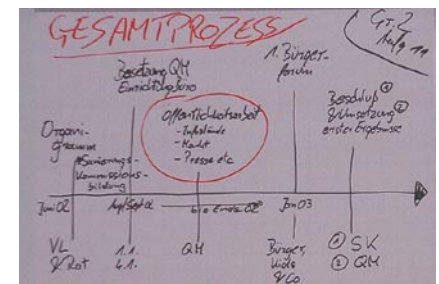 GESAMTPROZESS
Gr. 2
Besetzung QM
Einrichtg. Büro
1. Bürger-
forum
Öffentlichkeitsarbeit
- Infostände
- Markt
- Presse etc
Beschluß ①
& Umsetzung ②
erster Ergebnisse
Organi-
gramm
Sanierungs-
Kommissions-
bildung
Juni 02
Aug/Sept 02
bis Ende 02
Jan 03
VL
& Rat
1.1.
4.1.
QM
Bürger,
Kids
& Co
① SK
② QM